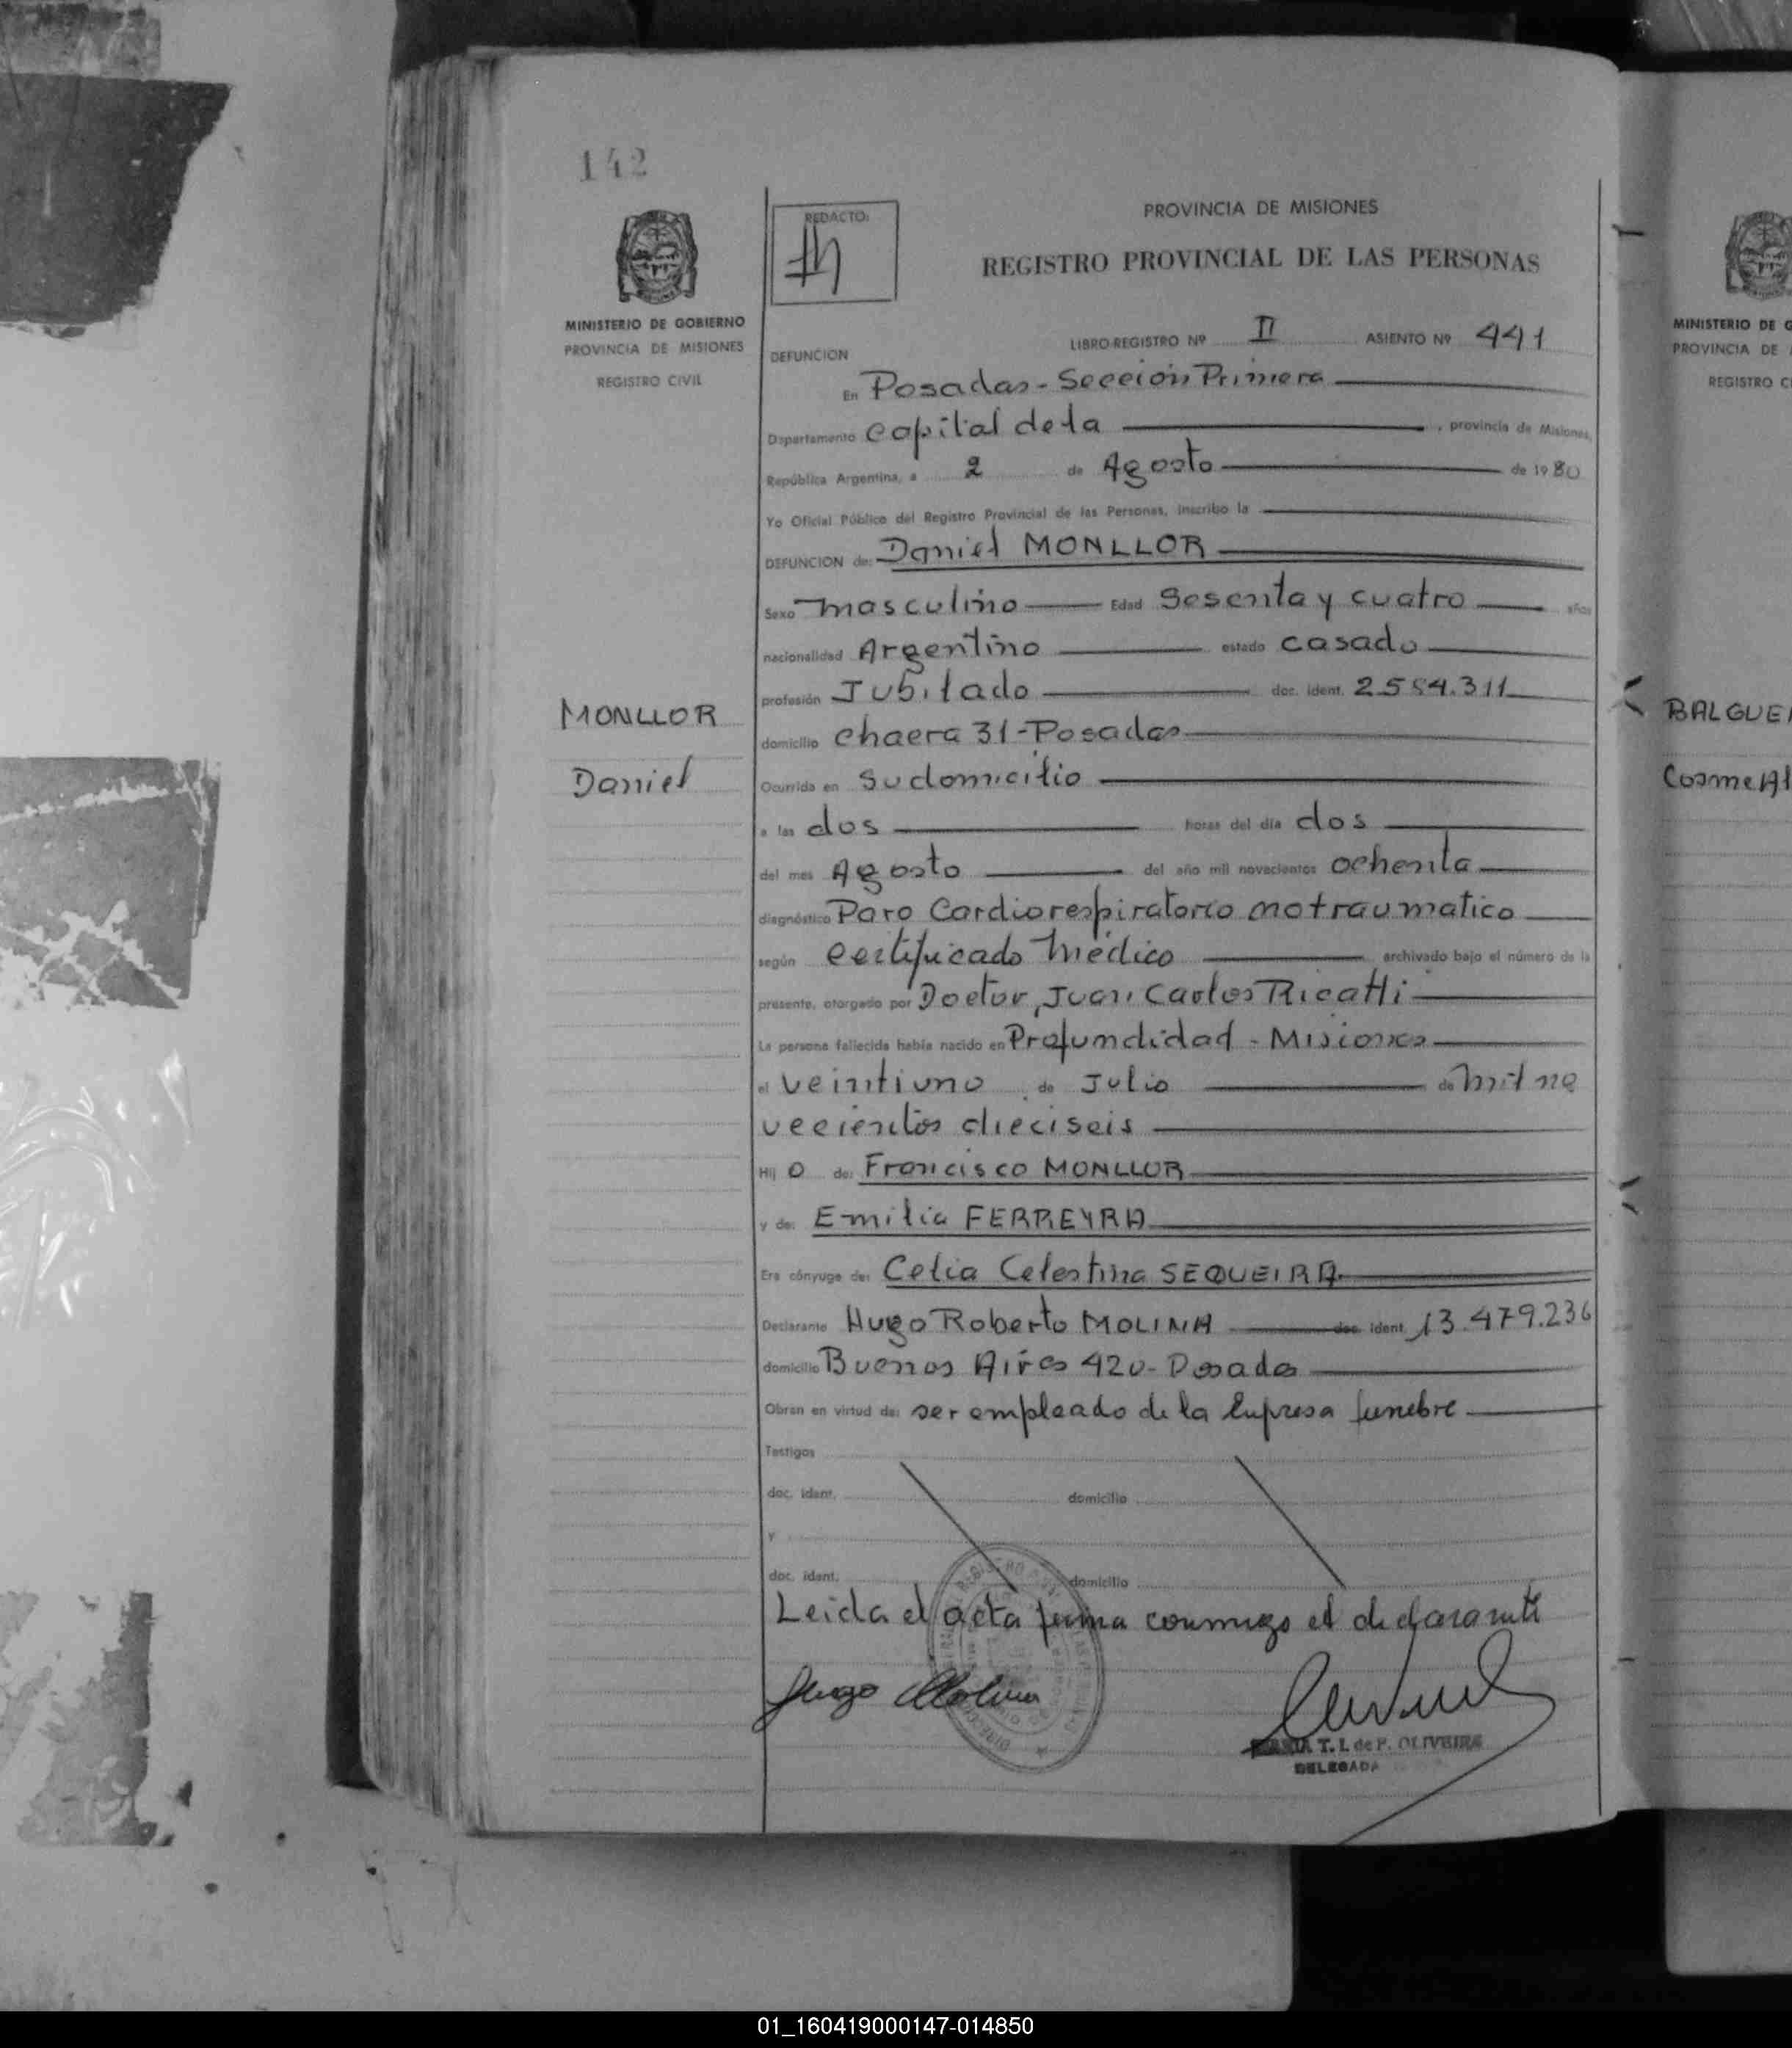 142
REDACTO:
PROVINCIA DE MISIONES
REGISTRO PROVINCIAL DE LAS PERSONAS
MINISTERIO DE GOBIERNO
PROVINCIA DE MISIONES
REGISTRO CIVIL
LIBRO-REGISTRO Nº II ASIENTO Nº 441
DEFUNCION
En Posadas - Sección Primera
Departamento Capital de la , provincia de Misiones,
República Argentina, a 2 de Agosto de 1980
Yo Oficial Público del Registro Provincial de las Personas, inscribo la
DEFUNCION de: Daniel MONLLOR
Sexo masculino Edad Sesenta y cuatro años
nacionalidad Argentino estado casado
profesión Jubilado doc. ident. 2.584.311
MONLLOR
Daniel
domicilio chacra 31 - Posadas
Ocurrida en Su domicilio
a las dos horas del día dos
del mes Agosto del año mil novecientos ochenta
diagnóstico Paro Cardiorespiratorio no traumatico
según certificado Médico archivado bajo el número de la
presente, otorgado por Doctor, Juan Carlos Ricatti
La persona fallecida había nacido en Profundidad - Misiones
el veintiuno de Julio de mil no
vecientos dieciseis
Hij o de: Francisco MONLLOR
y de: Emilia FERREYRA
Era cónyuge de: Celia Celestina SEQUEIRA.
Declarante Hugo Roberto MOLINA doc. ident. 13.479.236
domicilio Buenos Aires 420 - Posadas
Obran en virtud de: ser empleado de la Empresa funebre
Testigos
doc. ident. domicilio
y
doc. ident. domicilio
Leida el acta firma conmigo el declarante
Hugo Molina
MARIA T. I. de F. OLIVEIRA
DELEGADA
MINISTERIO DE G
PROVINCIA DE
REGISTRO C
BALGUE
Cosme Al
01_160419000147-014850